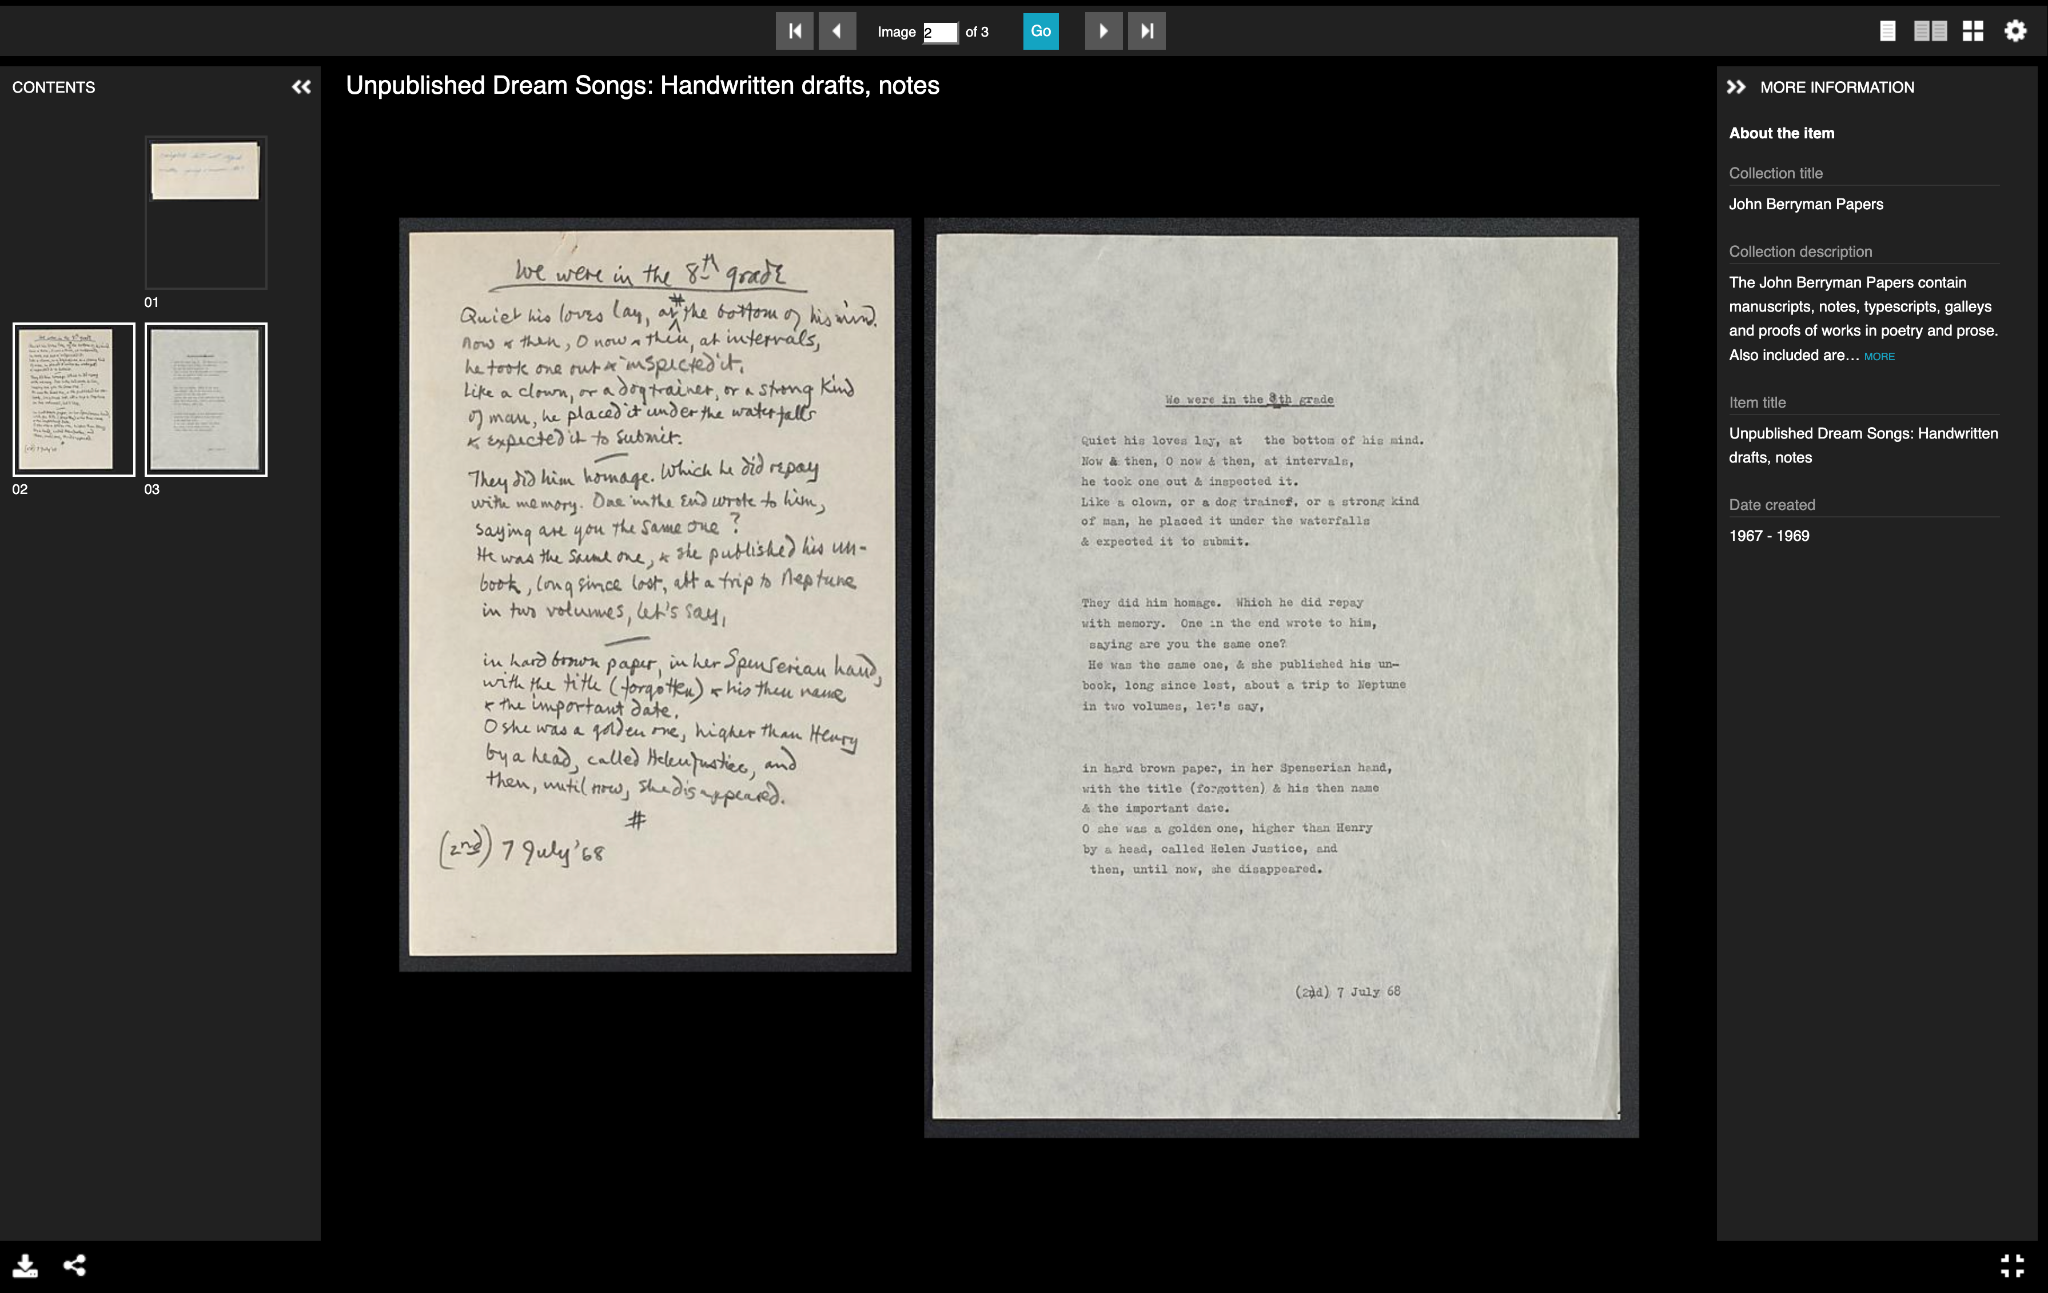 Image 2 of 3 Go
CONTENTS
01
02
03
Unpublished Dream Songs: Handwritten drafts, notes
We were in the 8th grade
Quiet his loves lay, at # the bottom of his mind.
Now & then, O now & then, at intervals,
he took one out & inspected it.
Like a clown, or a dog trainer, or a strong kind
of man, he placed it under the waterfalls
& expected it to submit.
They did him homage. Which he did repay
with memory. One in the end wrote to him,
saying are you the same one?
He was the same one, & she published his un-
book, long since lost, abt a trip to Neptune
in two volumes, let's say,
in hard brown paper, in her Spenserian hand,
with the title (forgotten) & his then name
& the important date.
O she was a golden one, higher than Henry
by a head, called Helen Justice, and
then, until now, she disappeared.
#
(2nd) 7 July '68
We were in the 8th grade
Quiet his loves lay, at the bottom of his mind.
Now & then, O now & then, at intervals,
he took one out & inspected it.
Like a clown, or a dog trainer, or a strong kind
of man, he placed it under the waterfalls
& expected it to submit.
They did him homage. Which he did repay
with memory. One in the end wrote to him,
saying are you the same one?
He was the same one, & she published his un-
book, long since lost, about a trip to Neptune
in two volumes, let's say,
in hard brown paper, in her Spenserian hand,
with the title (forgotten) & his then name
& the important date.
O she was a golden one, higher than Henry
by a head, called Helen Justice, and
then, until now, she disappeared.
(2nd) 7 July 68
MORE INFORMATION
About the item
Collection title
John Berryman Papers
Collection description
The John Berryman Papers contain
manuscripts, notes, typescripts, galleys
and proofs of works in poetry and prose.
Also included are... MORE
Item title
Unpublished Dream Songs: Handwritten
drafts, notes
Date created
1967 - 1969